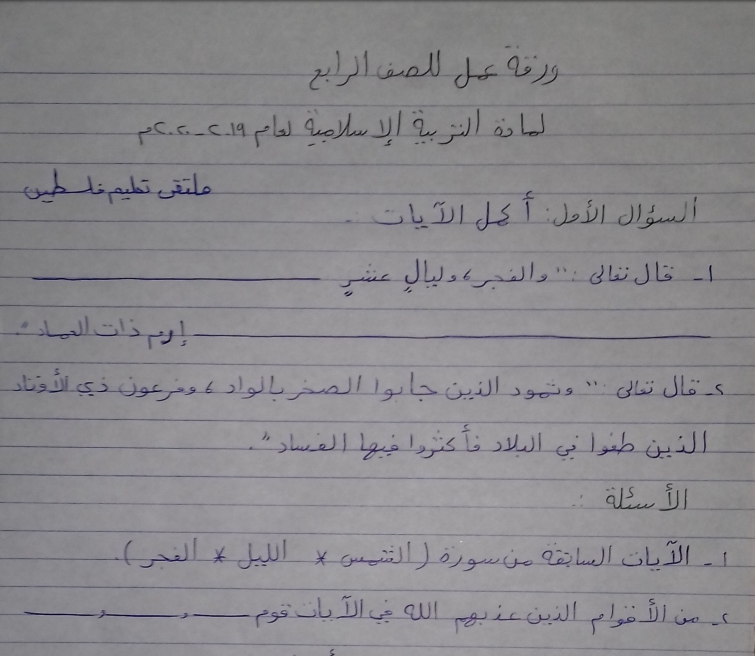 ورقة عمل للصف الرابع
لمادة التربية الإسلامية لعام ٢٠١٩-٢٠٢٠م
ملتقى تعليم فلسطين
السؤال الأول: أكمل الآيات :
١- قال تعالى :" والفجر، وليالٍ عشرٍ ____________
____________ إرم ذات العماد".
٢- قال تعالى :" وثمود الذين جابوا الصخر بالواد، وفرعون ذي الأوتاد
الذين طغوا في البلاد فأكثروا فيها الفساد".
الأسئلة :
١- الآيات السابقة من سورة ( الشمس * الليل * الفجر ).
٢- من الأقوام الذين عذبهم الله في الآيات قوم ______،______،______